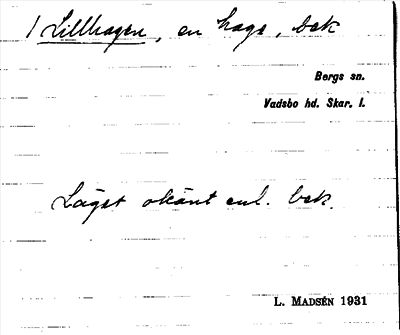 1 Lillhagen, en hage, bek
Bergs sn.
Vadsbo hd. Skar. l.
Läget okänt enl. bek.
L. MADSÉN 1931